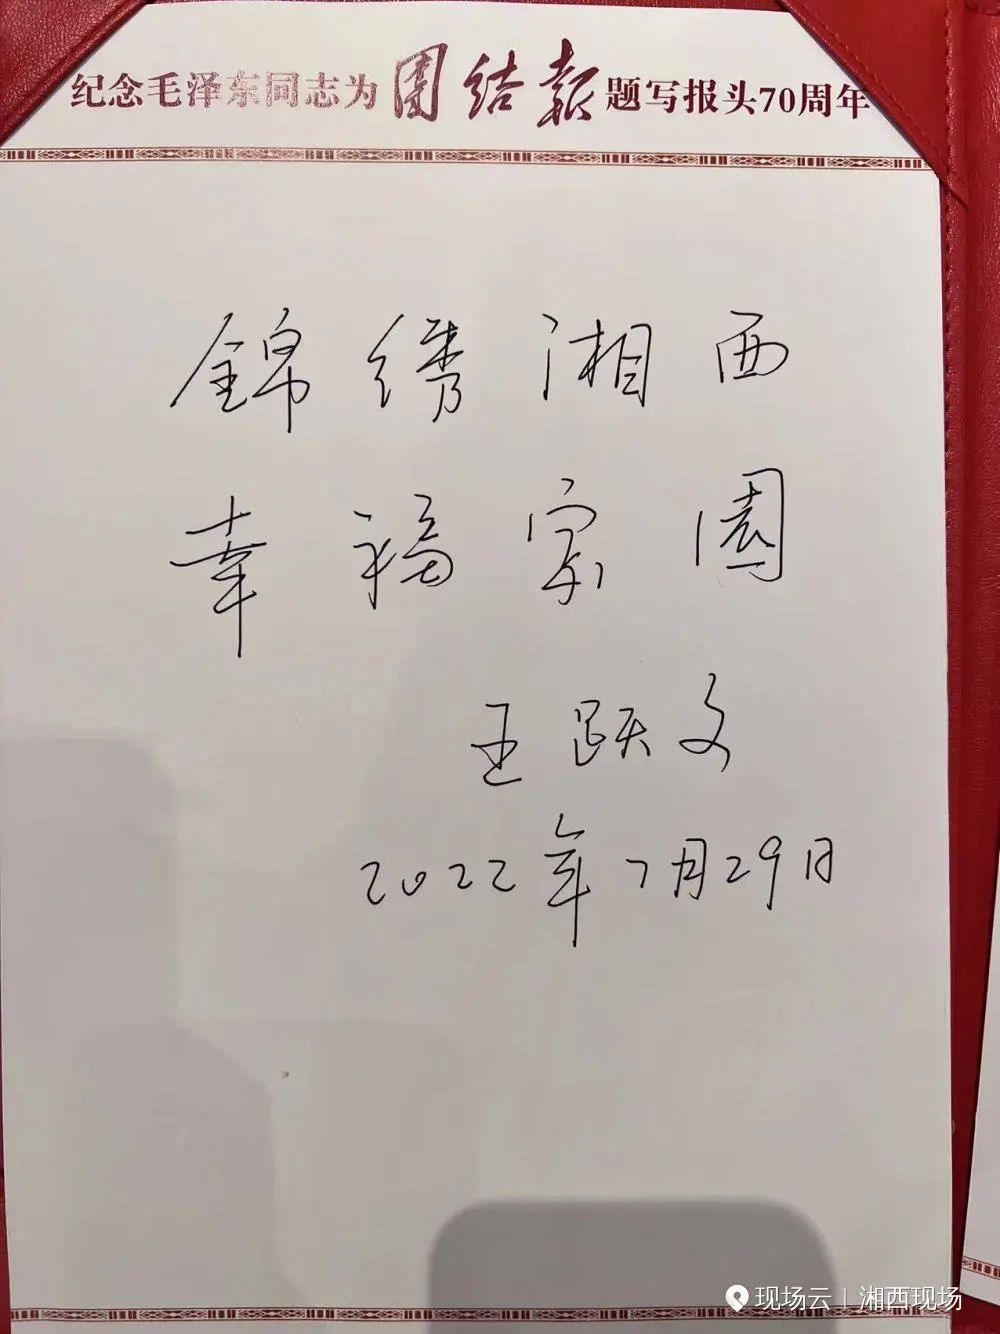 纪念毛泽东同志为团结报题写报头70周年
錦绣湘西
幸福家園
王跃文
2022年7月29日
现场云 | 湘西现场